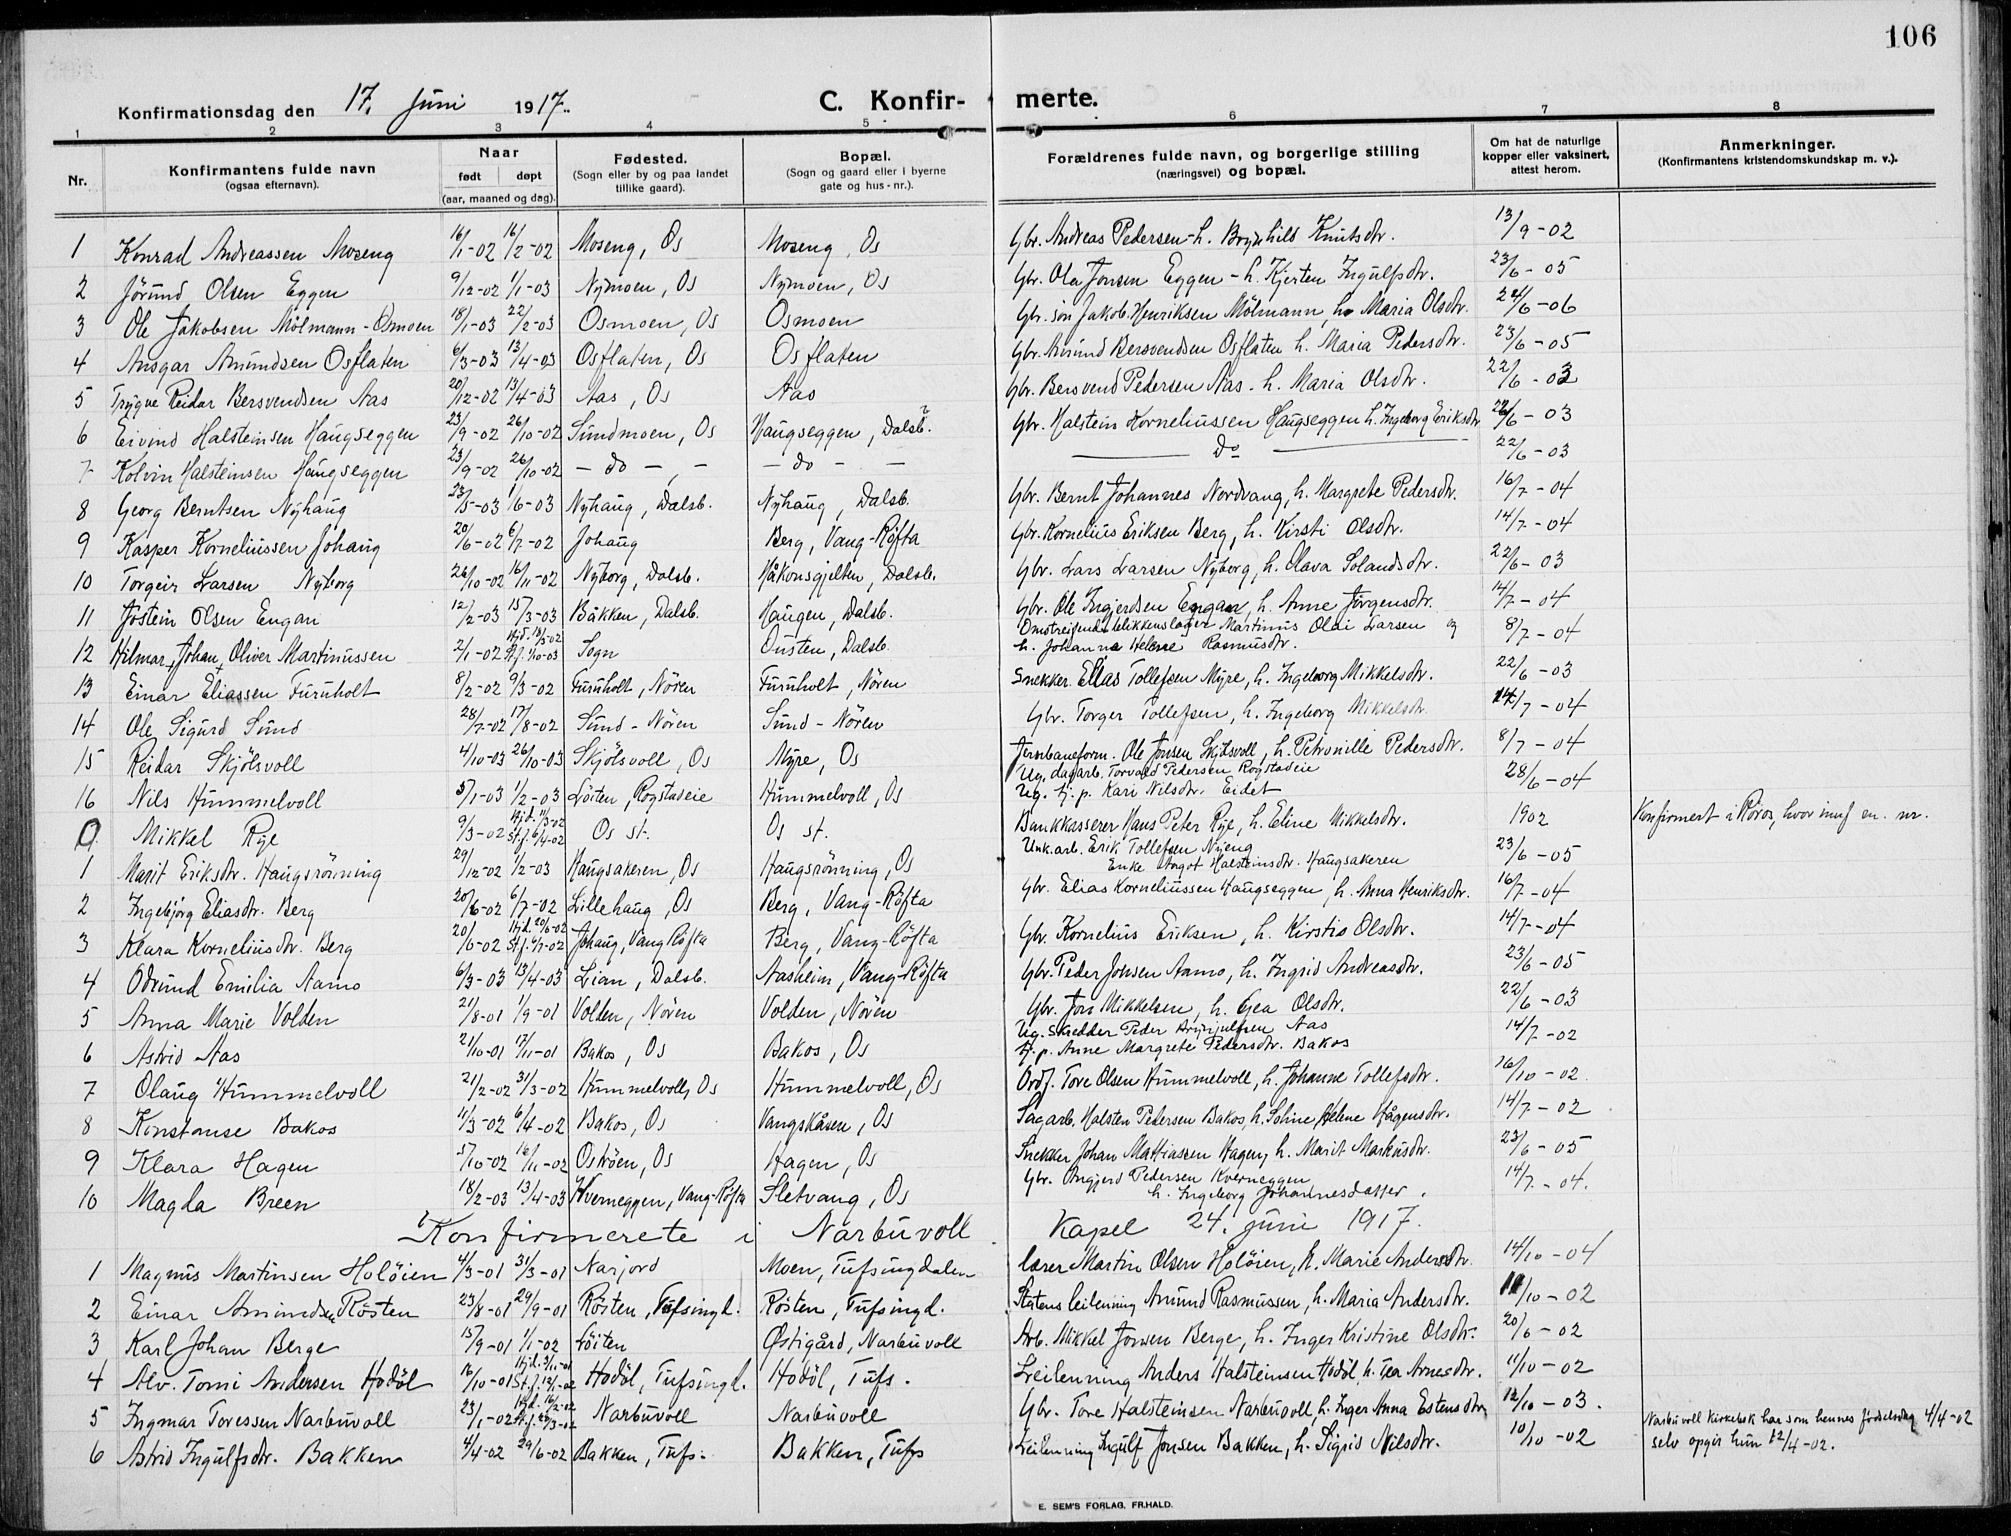 106
Konfirmationsdag den 17. Juni 1917. C. Konfir- merte.
1 2 3 4 5 6 7 8
Nr. Konfirmantens fulde navn (ogsaa efternavn). Naar født døpt (aar, maaned og dag). Fødested. (Sogn eller by og paa landet tillike gaard). Bopæl. (Sogn og gaard eller i byerne gate og hus-nr.). Forældrenes fulde navn, og borgerlige stilling (næringsvei) og bopæl. Om hat de naturlige kopper eller vaksinert, attest herom. Anmerkninger. (Konfirmantens kristendomskundskap m. v.).
1 Konrad Andreassen Moseng 16/1-02 16/2-02 Moseng, Os Moseng, Os Gbr. Andreas Pedersen - h. Brynhild Knutsdtr. 13/9-02
2 Jørund Olsen Eggen 9/12-02 1/1-03 Nymoen, Os Nymoen, Os Gbr. Ole Jonsen Eggen - h. Kjersten Ingulfsdtr. 23/6-05
3 Ole Jakobsen Mölmann-Osmoen 18/1-03 22/2-03 Osmoen, Os Osmoen Gbr. sön Jakob Henriksen Mölmann, h. Maria Olsdtr. 24/6-06
4 Ansgar Amundsen Osflaten 6/3-03 13/4-03 Osflaten, Os Osflaten Gbr. Amund Bersvendsen Osflaten h. Maria Pedersdtr. 23/6-05
5 Trygve Reidar Bersvendsen Aas 20/12-02 13/4-03 Aas, Os Aas Gbr. Bersvend Pedersen Aas - h. Maria Olsdtr. 22/6-03
6 Eivind Halsteinsen Haugseggen 23/9-02 26/10-02 Sundmoen, Os Haugseggen, Dalsb. Gbr. Halstein Korneliussen Haugseggen h. Ingeborg Eriksdtr 22/6-03
7 Kolvin Halsteinsen Haugseggen 23/9-02 26/10-02 - do - - - do - - Do 22/6-03
8 Georg Berntsen Nyhaug 23/5-03 1/6-03 Nyhaug, Dalsb. Nyhaug, Dalsb. Gbr. Bernt Johannes Nordvang, h. Margrete Pedersdtr. 16/7-04
9 Kasper Korneliussen Johaug 20/6-02 6/7-02 Johaug Berg, Vang-Röfta Gbr. Kornelius Eriksen Berg, h. Kirsti Olsdtr. 14/7-04
10 Torgeir Larsen Nyborg 26/10-02 16/11-02 Nyborg, Dalsb. Håkonsgjelten, Dalsb. Gbr. Lars Larsen Nyborg, h. Olava Solandsdtr. 22/6-03
11 Jostein Olsen Engan 12/2-03 15/3-03 Bakken, Dalsb. Haugen, Dalsb. Gbr. Ole Ingjerdsen Engan, h. Anne Jörgensdtr. 14/7-04
12 Hilmar Johan Oliver Martinussen 2/1-02 Sogn Ousten, Dalsb. Omstreifende blikkenslager Martinus Olai Larsen og 8/7-04
h. Johanna Helene Rasmusdtr.
13 Einar Eliassen Furuholt 8/2-02 9/3-02 Furuholt, Nören Furuholt, Nören Snekker Elias Tollefsen Myre, h. Ingeborg Mikkelsdtr. 22/6-03
14 Ole Sigurd Sund 28/7-02 17/8-02 Sund - Nören Sund - Nören Gbr. Torger Tollefsen, h. Ingeborg Mikkelsdtr 14/7-04
15 Reidar Skjölsvoll 4/10-03 26/10-03 Skjölsvoll, Os Myre, Os Jernbaneform. Ole Jonsen Skjölsvoll, h. Petronille Pedersdtr. 8/7-04
16 Nils Hummelvoll 5/1-03 1/2-03 Löiten, Rogstadeie Hummelvoll, Os Ug. dagarb. Torvald Pedersen Rogstadeie 28/6-04
Ug. tj. p. Kari Nilsdtr. Eidet
0 Mikkel Rye 9/3-02 Hjd. 11/3-02 St.f. 6/4-02 Os st. Os st. Bankkasserer Hans Peter Rye, h. Eline Mikkelsdtr. 1902 Konfirmert i Röros, hvor innf en. nr.
1 Marit Eriksdtr. Haugsrönning 29/12-02 1/2-03 Haugsakeren, Os Haugsrönning, Os Unk.arb. Erik Tollefsen Nyeng 23/6-05
Enke Aagot Halsteinsdtr. Haugsakeren
2 Ingebjörg Eliasdtr. Berg 20/6-02 6/7-02 Lillehaug, Os Berg, Vang-Röfta Gbr. Elias Korneliussen Haugseggen, h. Anna Henriksdtr. 16/7-04
3 Klara Korneliusdtr. Berg 20/6-02 Hjd. 20/6-02 St.f. 6/7-02 Johaug, Vang Röfta Berg, Vang-Röfta Gbr. Kornelius Eriksen, h. Kirstis Olsdtr. 14/7-04
4 Odrund Emilia Aamo 6/3-03 13/4-03 Lian, Dalsb. Aasheim, Vang-Röfta Gbr. Peder Jonsen Aamo, h. Ingrid Andreasdtr. 23/6-05
5 Anna Marie Volden 21/8-01 1/9-01 Volden, Nören Volden, Nören Gbr. Jon Mikkelsen, h. Gea Olsdtr. 22/6-03
6 Astrid Aas 21/10-01 17/11-01 Bakos, Os Bakos, Os Ug. Skredder Peder Brynjulfsen Aas 14/7-02
tj.p. Anne Margrete Pedersdtr. Bakos
7 Olaug Hummelvoll 21/2-02 31/3-02 Hummelvoll, Os Hummelvoll, Os Ordf. Tore Olsen Hummelvoll, h. Johanne Tollefsdtr. 16/10-02
8 Konstanse Bakos 11/3-02 6/4-02 Bakos, Os Vangskåsen, Os Sagarb. Halsten Pedersen Bakos, h. Seline Helene Hågensdtr. 14/7-02
9 Klara Hagen 5/10-02 16/11-02 Oströen, Os Hagen, Os Snekker Johan Mathiassen Hagen, h. Marit Markusdtr. 23/6-05
10 Magda Breen 18/2-03 13/4-03 Kverneggen, Vang-Röfta Sletvang, Os Gbr. Ingjerd Pedersen Kverneggen 14/7-04.
h. Ingeborg Johannesdatter.
Konfirmerete i Narbuvoll Kapel 24. juni 1917.
1 Magnus Martinsen Holöien 4/3-01 31/3-01 Narjord Moen, Tufsingdalen lærer Martin Olsen Holöien, h. Marie Andersdtr. 14/10-04
2 Einar Amundsen Rösten 23/8-01 29/9-01 Rösten, Tufsingd. Rösten, Tufsingd. Statens leilenning Amund Rasmussen, h. Maria Andersdtr. 11/10-02
3 Karl Johan Berge 15/9-01 1/1-02 Löiten Østigård, Narbuvoll Arb. Mikkel Jonsen Berge, h. Inger Kristine Olsdtr. 20/6-02
4 Alv. Tomi Andersen Hodöl 16/10-01 Hodöl, Tufsingd. Hodöl, Tufs. Leilenning Anders Halsteinsen Hodöl, h. Tea Arnesdtr. 11/10-02
5 Ingmar Toressen Narbuvoll 23/1-02 Narbuvoll Narbuvoll Gbr. Tore Halsteinsen Narbuvoll, h. Inger Anna Estensdtr 12/10-03.
6 Astrid Ingulfsdtr. Bakken 4/4-02 29/6-02 Bakken, Tufs. Bakken, Tufs Leilenning Ingulf Jonsen Bakken, h. Sigrid Nilsdtr. 10/10-02 Narbuvoll kirkebok har som hennes födselsdag 4/4-02
selv opgir hun 12/4-02.
E. SEM'S FORLAG, FR.HALD.